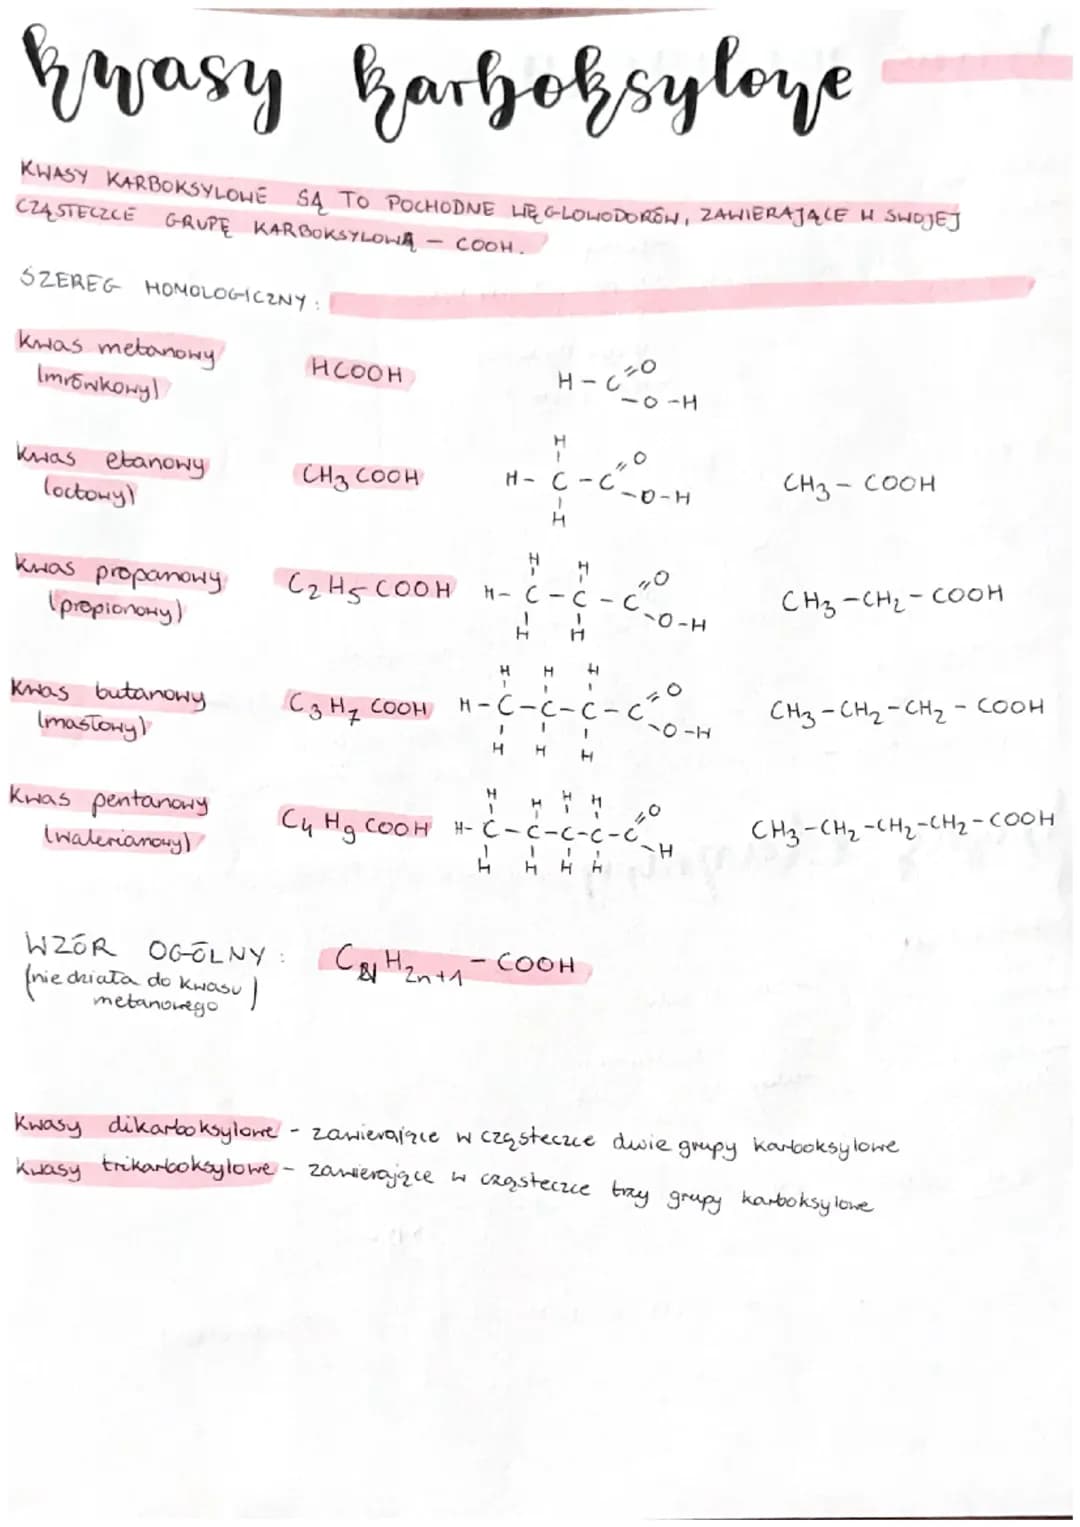 kwasy karboksylowe
KWASY KARBOKSYLOWE SĄ TO POCHODNE WĘGLOWODORÓW, ZAWIERAJĄCE W SWOJEJ
CZĄSTECZCE GRUPĘ KARBOKSYLOWĄ – COOH.
SZEREG HOMOLOGICZNY:
kwas metanowy
(mrówkowy)
HCOOH
H-C=O
-O-H
kwas etanowy
(octowy)
CH3COOH
H
H-C-C=O
-O-H
H
CH3-COOH
kwas propanowy
(propionowy)
C2H5COOH
H H
H-C-C-C=O
-O-H
H H
CH3-CH2-COOH
kwas butanowy
(masłowy)
C3H7COOH
H H H
H-C-C-C-C=O
-O-H
H H H
CH3-CH2-CH2-COOH
kwas pentanowy
(walerianowy)
C4H9COOH
H H H H
H-C-C-C-C-C=O
-H
H H H H
CH3-CH2-CH2-CH2-COOH
WZÓR OGÓLNY: CnH2n+1-COOH
(nie działa do kwasu
metanowego)
kwasy dikarboksylowe - zawierające w cząsteczce dwie grupy karboksylowe
kwasy trikarboksylowe - zawierające w cząsteczce trzy grupy karboksylowe